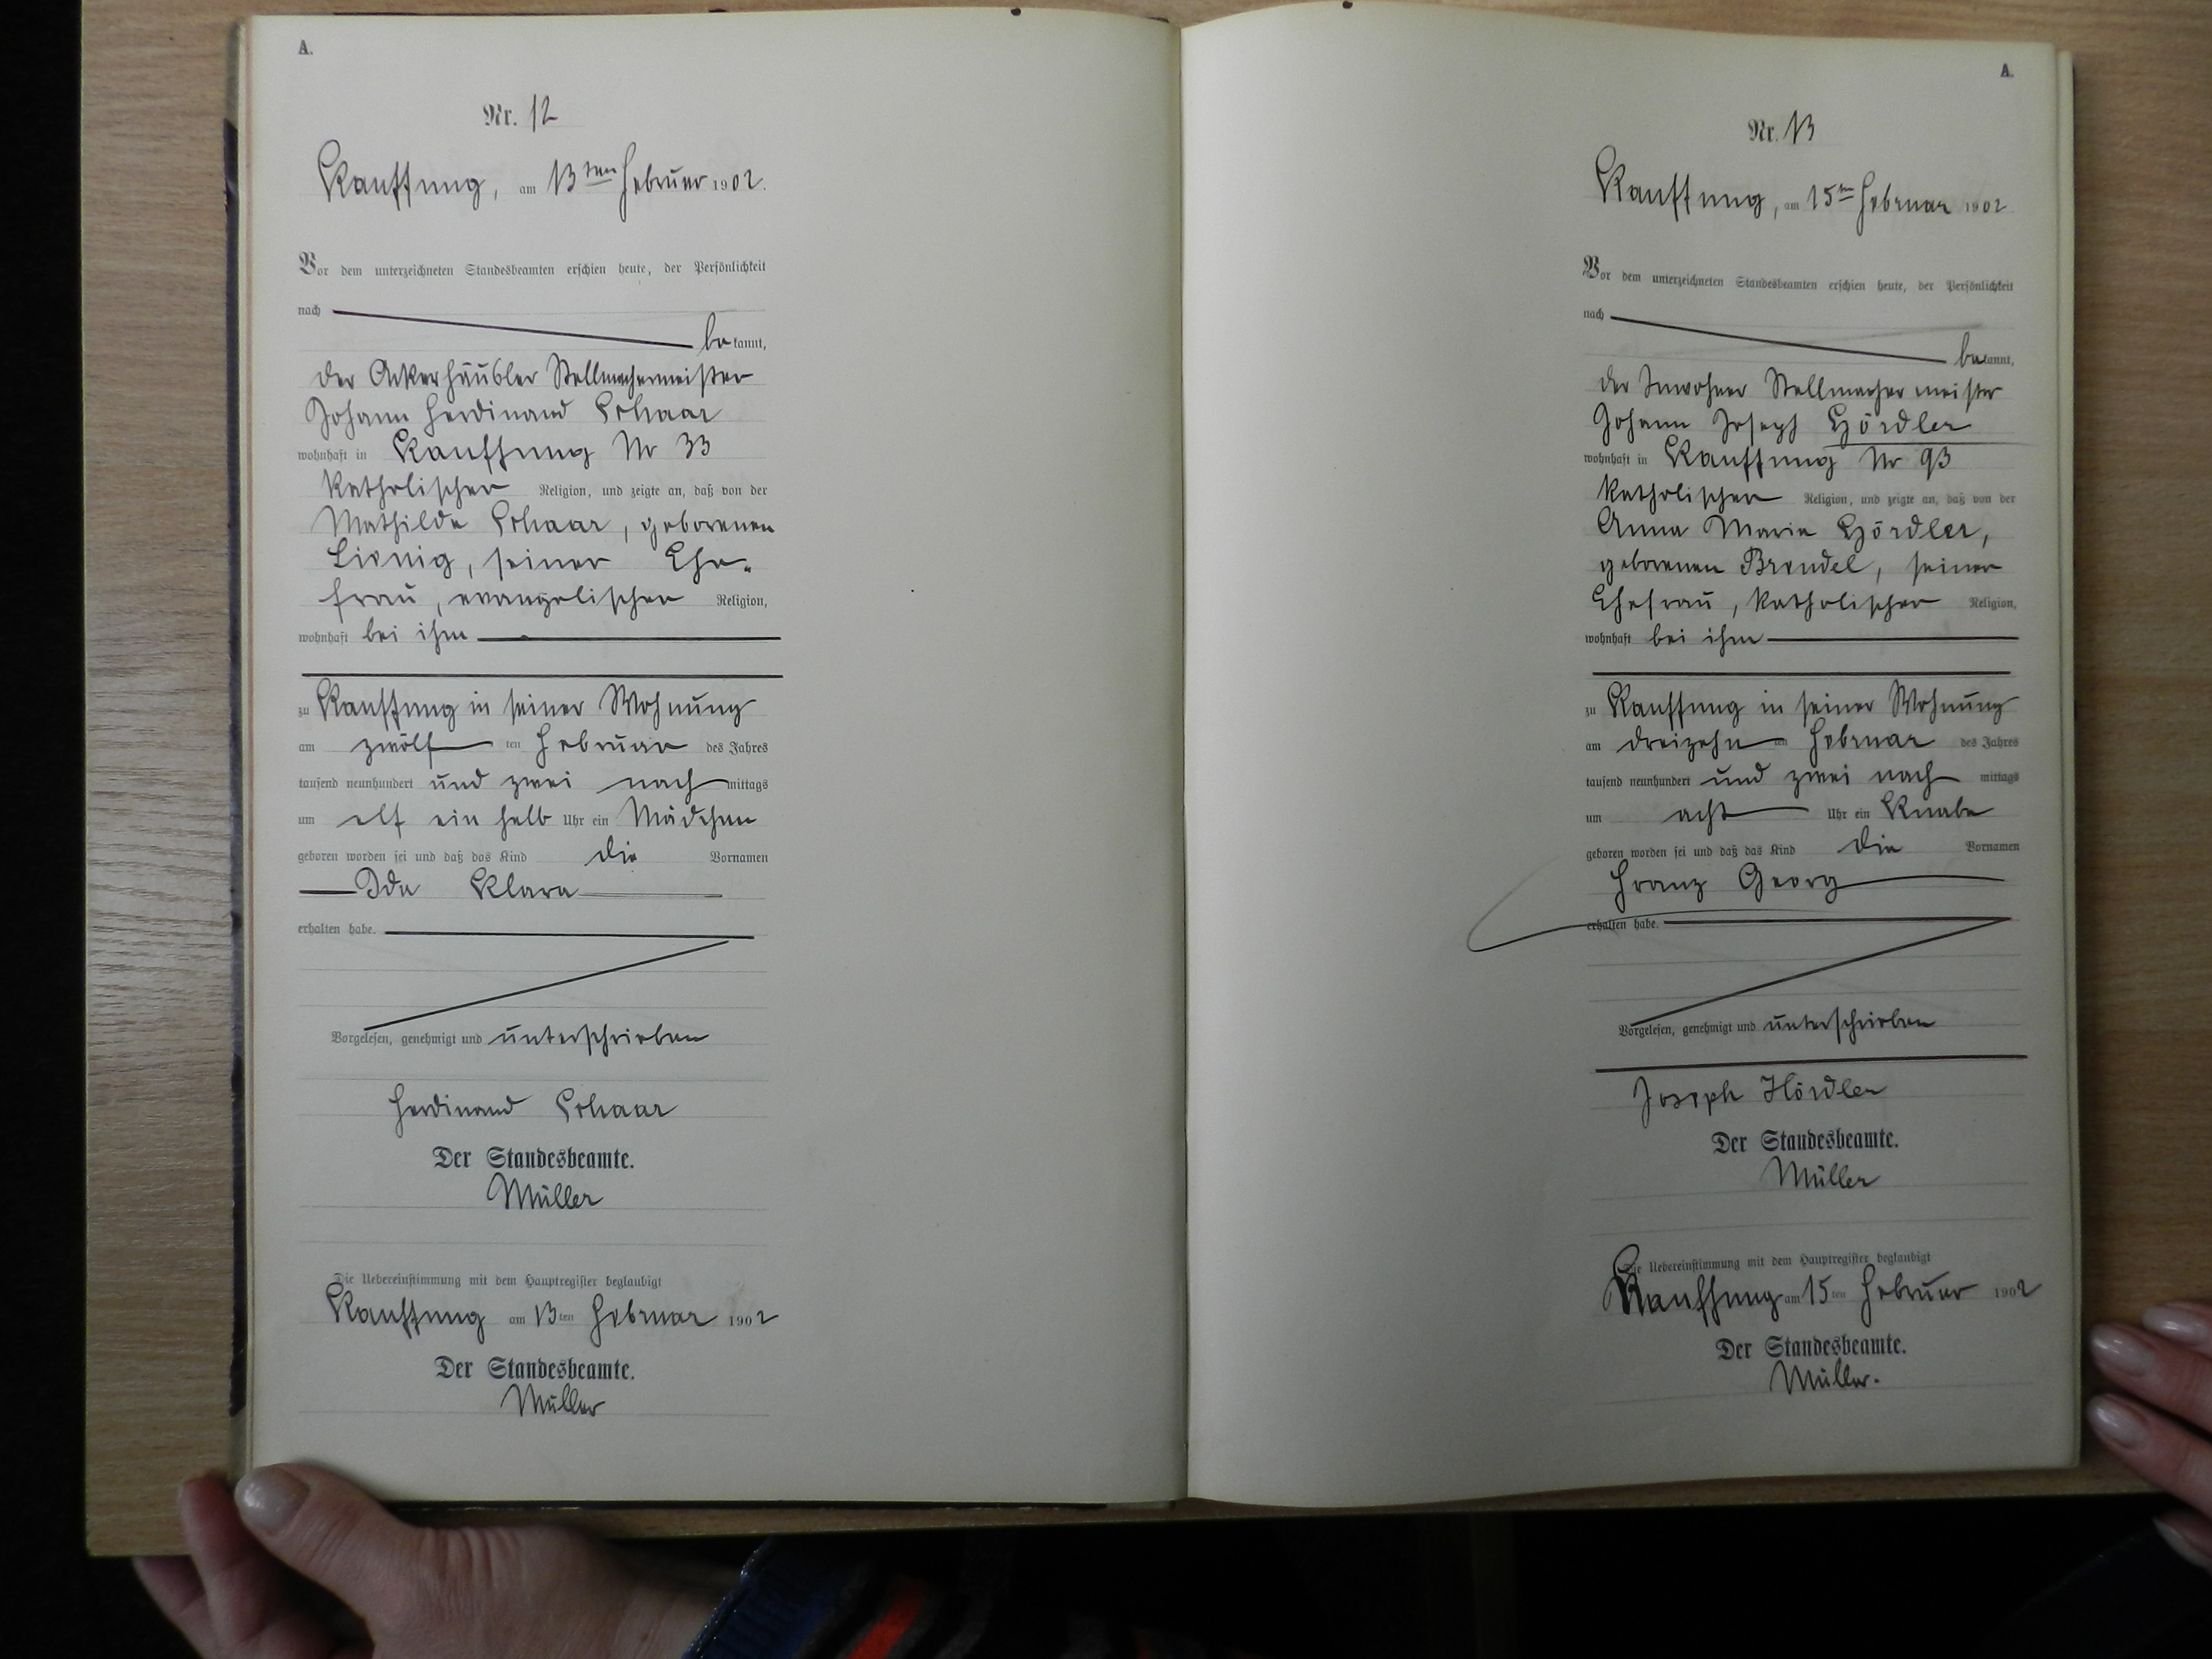 A.
Nr. 12
Kauffung, am 13ten Februar 1902.
Vor dem unterzeichneten Standesbeamten erschien heute, der Persönlichkeit
nach
bekannt,
der Ackerhäusler Stellmachermeister
Johann Ferdinand Schaar
wohnhaft in Kauffung Nr 33
katholischer Religion, und zeigte an, daß von der
Mathilde Schaar, geborenen
seiner Ehe-
frau, evangelischer Religion,
wohnhaft bei ihm
zu Kauffung in seiner Wohnung
am zwölften Februar des Jahres
tausend neunhundert und zwei nachmittags
um elf ein halb Uhr ein Mädchen
geboren worden sei und daß das Kind die Vornamen
Ida Klara
erhalten habe.
Vorgelesen, genehmigt und unterschrieben
Ferdinand Schaar
Der Standesbeamte.
Müller
Die Uebereinstimmung mit dem Hauptregister beglaubigt
Kauffung am 13ten Februar 1902
Der Standesbeamte.
Müller
A.
Nr. 13
Kauffung, am 15ten Februar 1902
Vor dem unterzeichneten Standesbeamten erschien heute, der Persönlichkeit
nach
bekannt,
der Inwohner Stellmachermeister
Johann Joseph Hördler
wohnhaft in Kauffung Nr 93
katholischer Religion, und zeigte an, daß von der
Anna Maria Hördler,
geborenen Brendel, seiner
Ehefrau, katholischer Religion,
wohnhaft bei ihm
zu Kauffung in seiner Wohnung
am dreizehnten Februar des Jahres
tausend neunhundert und zwei nachmittags
um acht Uhr ein Knabe
geboren worden sei und daß das Kind die Vornamen
Franz Georg
erhalten habe.
Vorgelesen, genehmigt und unterschrieben
Joseph Hördler
Der Standesbeamte.
Müller
Die Uebereinstimmung mit dem Hauptregister beglaubigt
Kauffung am 15ten Februar 1902
Der Standesbeamte.
Müller.